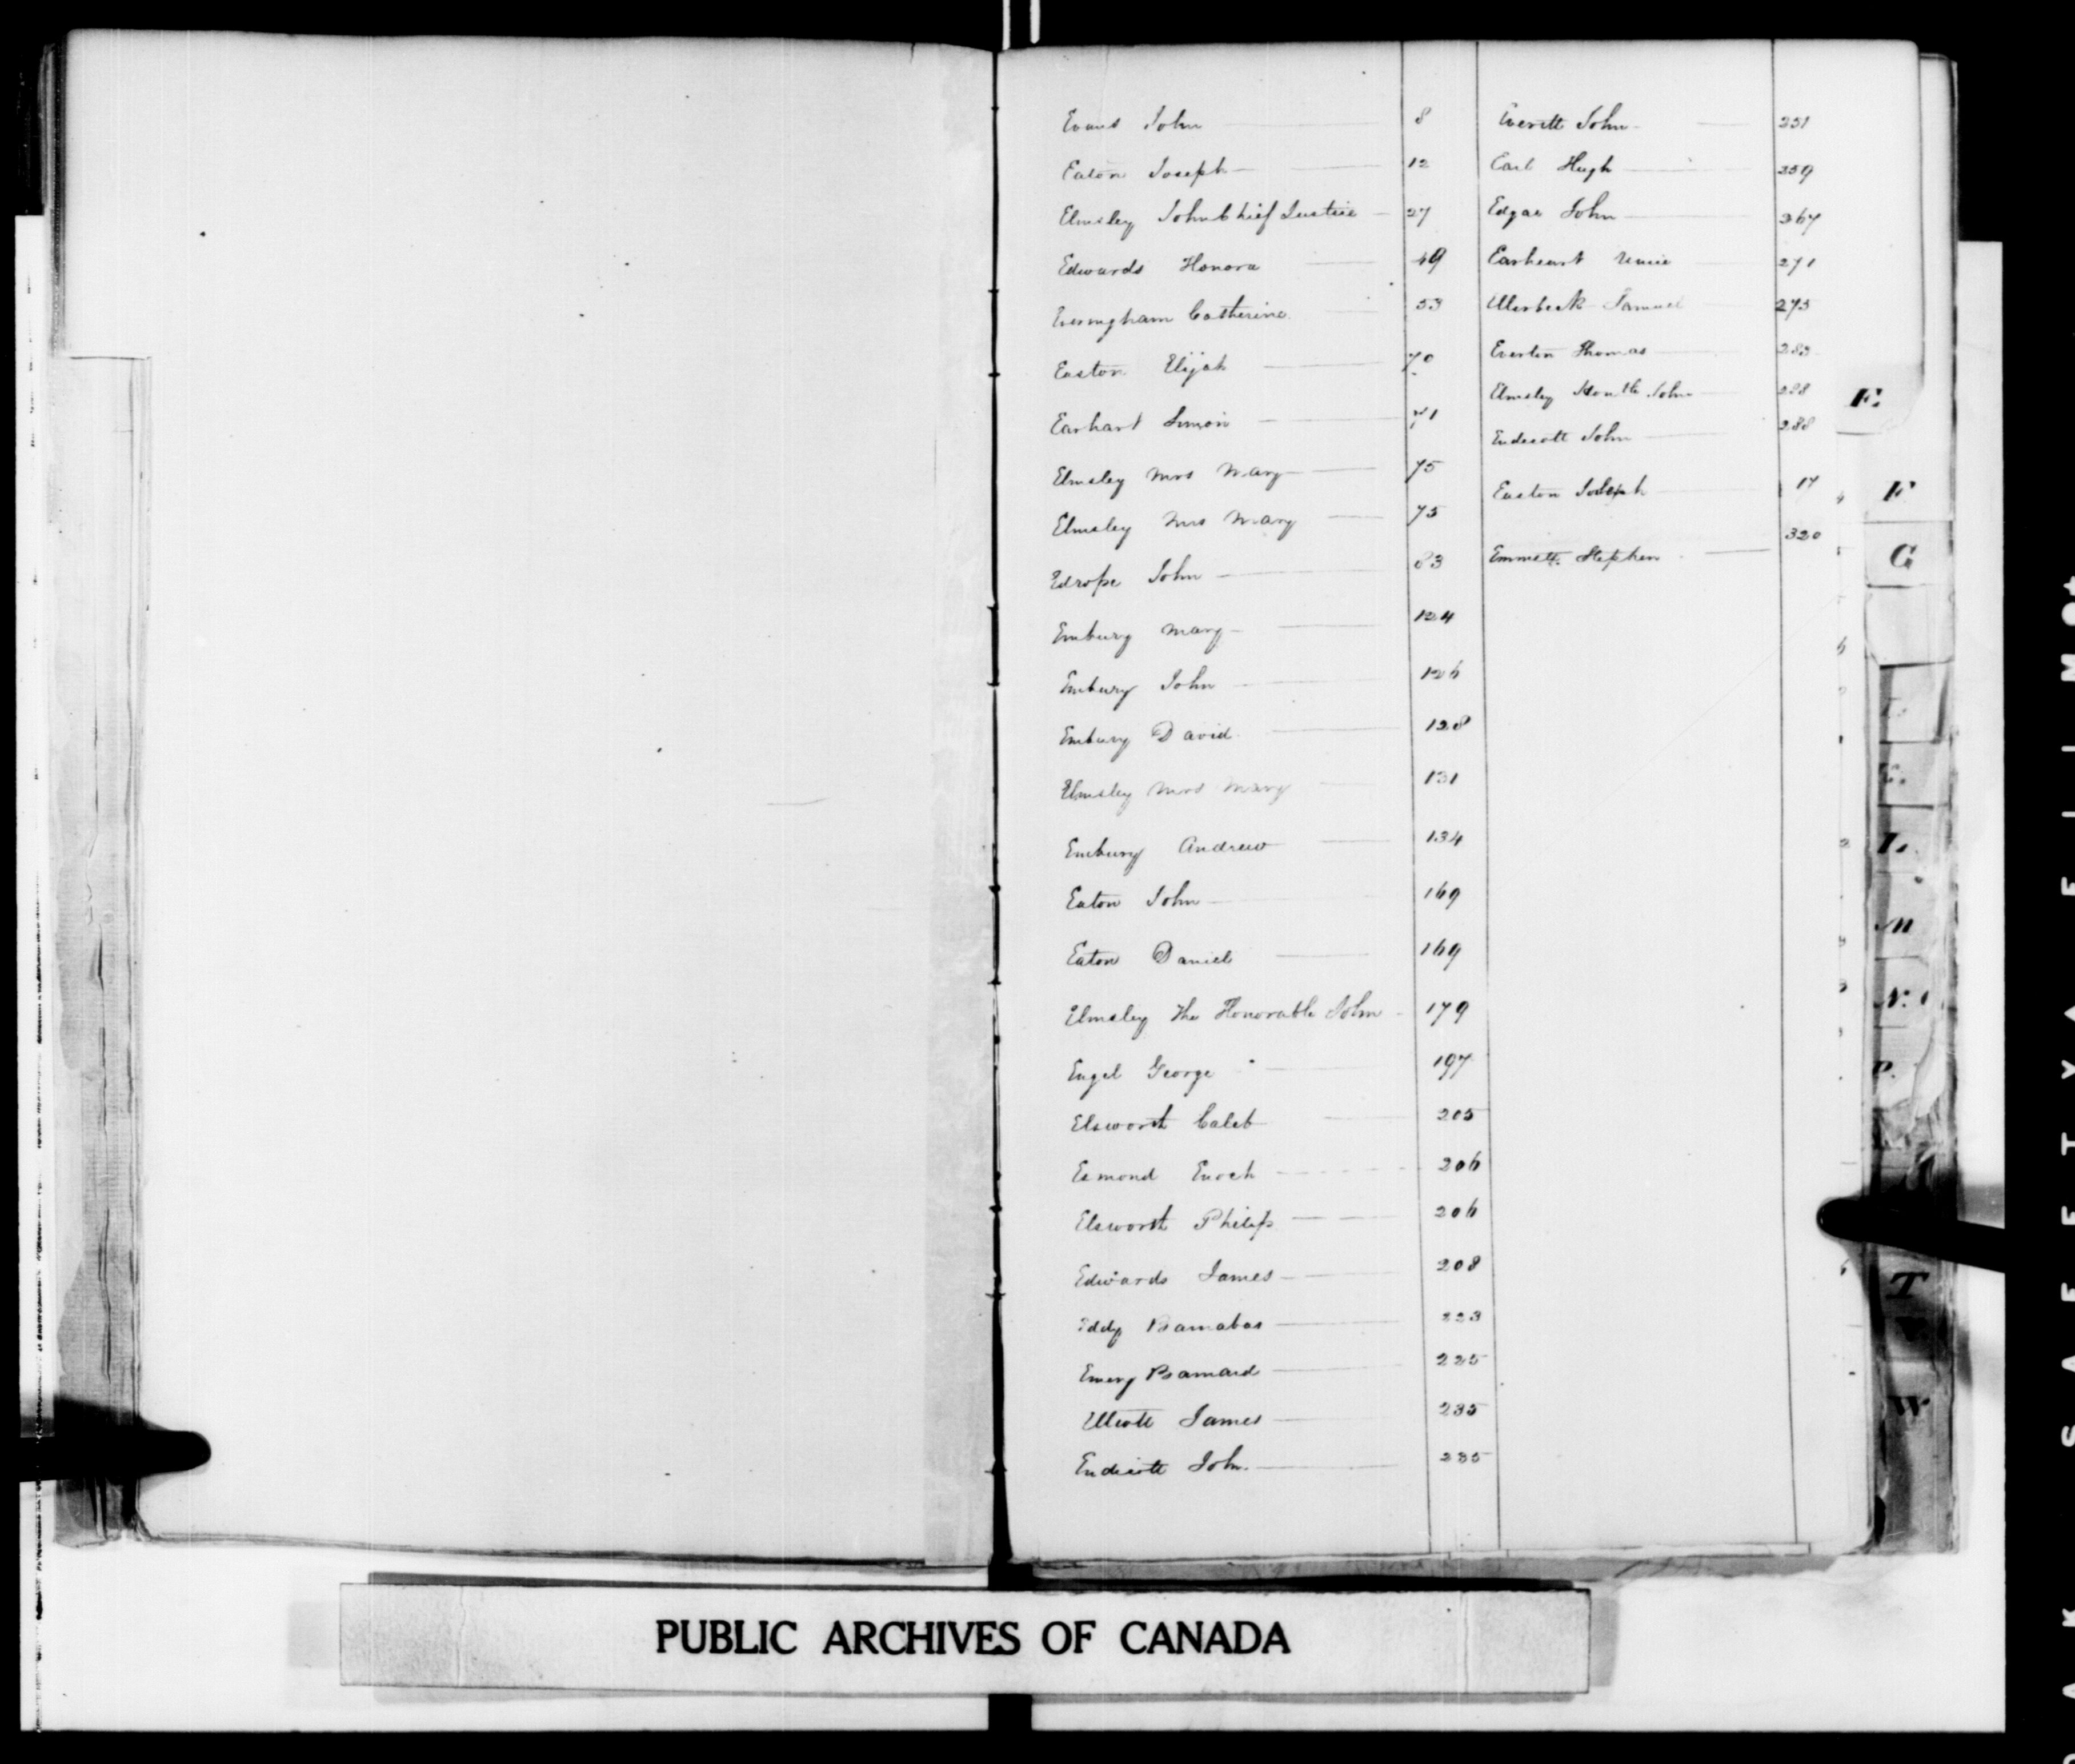 Evans John 8
Eaton Joseph 12
Elmsley John Chief Justice 27
Edwards Honora 49
Everingham Catherine 53
Easton Elijah 70
Earhart Simon 71
Elmsley Mrs Mary 75
Elmsley Mrs Mary 75
Edrope John 83
Embury Mary 124
Embury John 126
Embury David 128
Elmsley Mrs Mary 131
Embury Andrew 134
Eaton John 169
Eaton Daniel 169
Elmsley The Honorable John 179
Engel George 197
Elsworth Caleb 205
Esmond Enoch 206
Elsworth Philip 206
Edwards James 208
Eddy Barnabas 223
Emery Barnard 225
Ellicott James 235
Endicott John 235
Everitt John 251
Earl Hugh 259
Edgar John 267
Earheart 271
Ellerbeck Samuel 275
Everton Thomas 283
Elmsley Honble John 288
Endicott John 288
Easton Joseph 17
Emmett Stephen 320
E.
F
G
I.
K.
L.
M
N.
P.
T
V
W
PUBLIC ARCHIVES OF CANADA